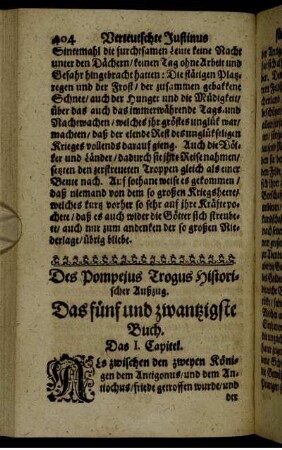 404 Verteutschte Justinus
Sintemahl die furchtsamen Leute keine Nacht
unter den Dächern / keinen Tag ohne Arbeit und
Gefahr hingebracht hatten: Die stätigen Plag-
regen und der Frost / der zusammen gebakkene
Schnee / auch der Hunger und die Müdigkeit /
über das auch das immerwährende Tags-und
Nachtwachen / welches ihr gröstes unglük war-
machten / daß der elende Rest des unglükseligen
Krieges vollends darauf gieng. Auch die Völ-
ker und Länder / dadurch sie ihre Reise nahmen /
setzten den zerstreueten Troppen gleich als einer
Beute nach. Auf sothane weise ist gekommen /
daß niemand von dem so großen Kriegsheere /
welches kurtz vorher so sehr auf ihre Kräfte po-
chete / daß es auch wider die Götter sich streube-
te / auch nur zum andenken der so großen Nie-
derlage / übrig bliebe.
Des Pompejus Trogus Histori-
scher Außzug.
Das fünf und zwantzigste
Buch.
Das I. Capitel.
Als zwischen den zweyen Köni-
gen dem Antigonus / und dem An-
tiochus / friede getroffen wurde / und
der